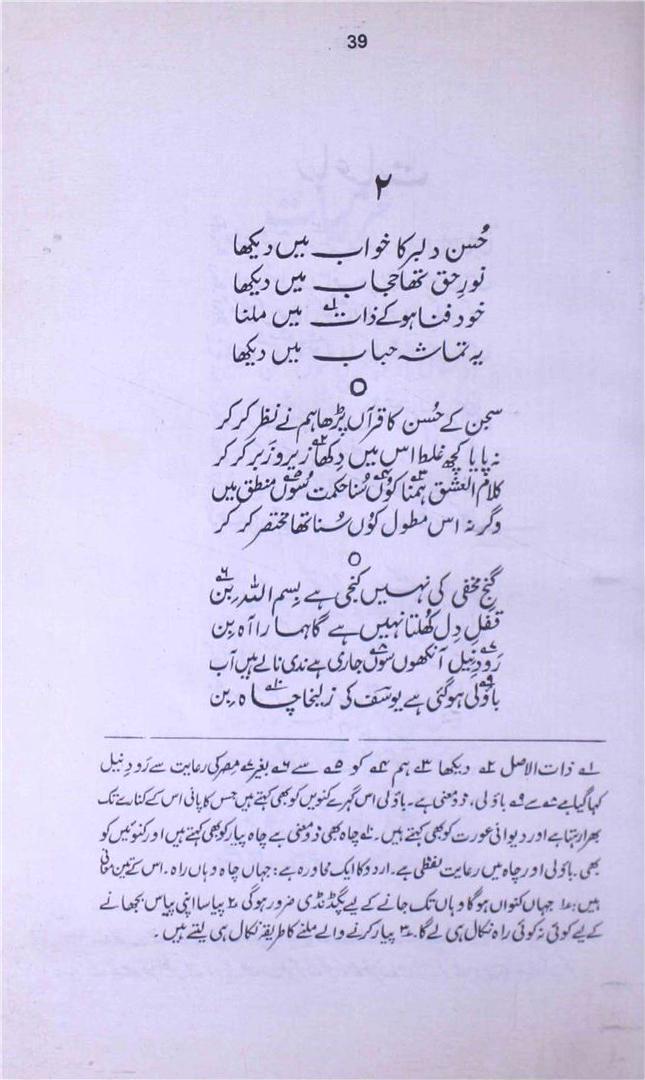 39
۲
حُسن دلبر کا خواب میں دیکھا
نورِ حق تھا حجاب میں دیکھا
خود فنا ہو کے ذات۱؎ میں ملنا
یہ تماشہ حباب میں دیکھا
سجن کے حُسن کا قرآں پڑھا ہم نے نظر کر کر
نہ پایا کچھ غلط اس میں دِکھا۲؎ زیر و زَبر کر کر
کلام العشق ہمنا۳؎ کوں۴؎ سُنا حکمت سُوں۵؎ منطق میں
وگرنہ اس مطول کوں سُنا تھا مختصر کر کر
گنجِ مخفی کی نہیں کنجی ہے بِسم اللہ بِن۶؎
قفلِ دِل کُھلتا نہیں ہے گا ہمارا آہ بِن
رَودِ نیل۷؎ آنکھوں سُوں۸؎ جاری ہے ندی نالے ہیں آب
باؤلی۹؎ ہو گئی ہے یوسف کی زلیخا چاہ۱۰؎ بِن
۱؎ ذات الاصل ۲؎ دیکھا ۳؎ ہم ۴؎ کو ۵؎ سے ۶؎ بغیر ۷؎ مصر کی رعایت سے رَودِ نیل
کہا گیا ہے ۸؎ سے ۹؎ باؤلی، ذومعنی ہے۔ باؤلی اس گہرے کنویں کو بھی کہتے ہیں جس کا پانی اس کے کنارے تک
بھرا رہتا ہے اور دیوانی عورت کو بھی کہتے ہیں۔ ۱۰؎ چاہ بھی ذومعنی ہے چاہ پیار کو بھی کہتے ہیں اور کنوئیں کو
بھی۔ باؤلی اور چاہ میں رعایت لفظی ہے۔ اردو کا ایک محاورہ ہے: جہاں چاہ وہاں راہ۔ اس کے تین معانی
ہیں: ۱؎ جہاں کنواں ہو گا وہاں تک جانے کے لیے پگڈنڈی ضرور ہو گی ۲؎ پیاسا اپنی پیاس بجھانے
کے لیے کوئی نہ کوئی راہ نکال ہی لے گا۔ ۳؎ پیار کرنے والے ملنے کا طریقہ نکال ہی لیتے ہیں۔